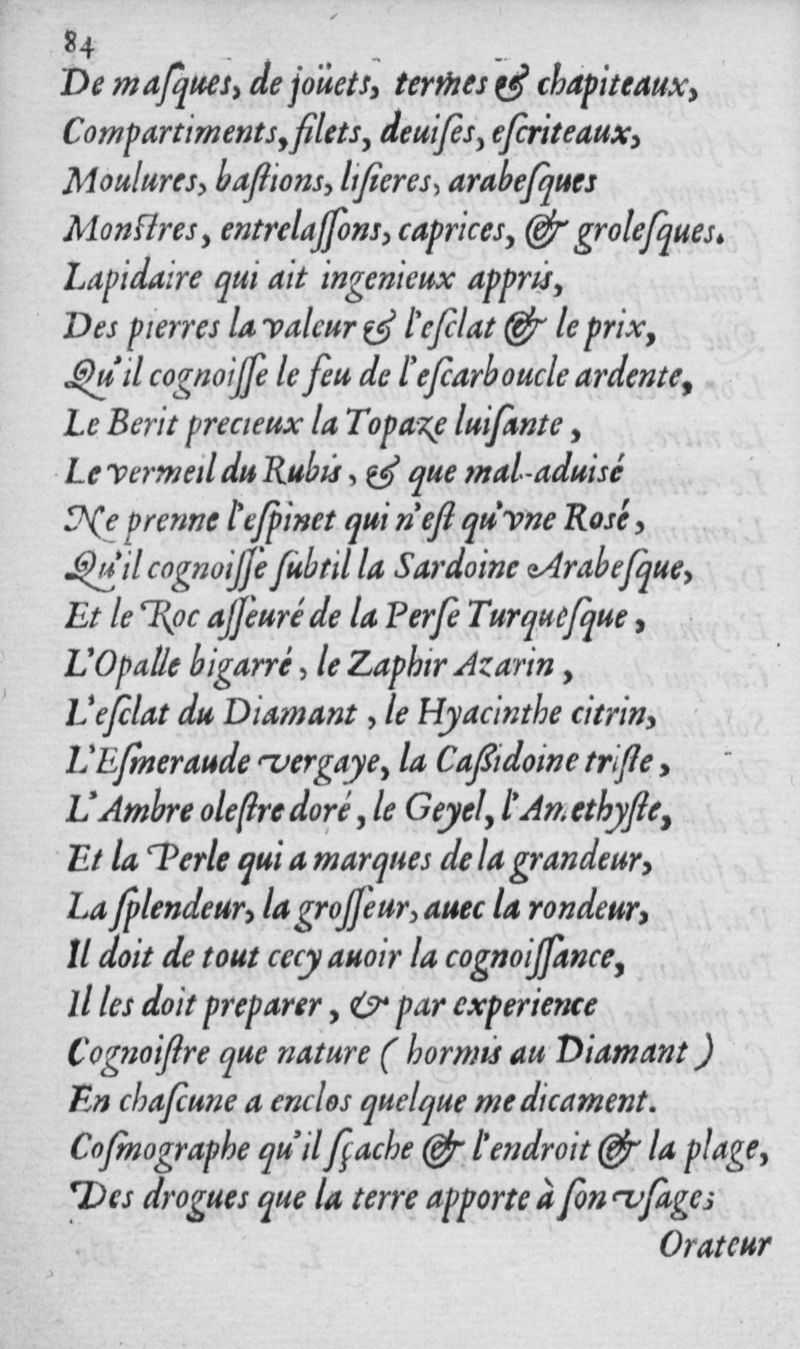 84
De maſques, de joüets, termes & chapiteaux,
Compartiments, filets, deuiſes, eſcriteaux,
Moulures, baſtions, liſieres, arabeſques
Monſtres, entrelaſſons, caprices, & groleſques.
Lapidaire qui ait ingenieux appris,
Des pierres la valeur & l'eſclat & le prix,
Qu'il cognoiſſe le feu de l'eſcarboucle ardente,
Le Berit precieux la Topaze luiſante,
Le vermeil du Rubis, & que mal-aduisé
Ne prenne l'eſpinet qui n'eſt qu'vne Rosé,
Qu'il cognoiſſe ſubtil la Sardoine Arabeſque,
Et le Roc aſſeuré de la Perſe Turqueſque,
L'Opalle bigarré, le Zaphir Azarin,
L'eſclat du Diamant, le Hyacinthe citrin,
L'Eſmeraude vergaye, la Caßidoine triſte,
L'Ambre oleſtre doré, le Geyel, l'Amethyſte,
Et la Perle qui a marques de la grandeur,
La ſplendeur, la groſſeur, auec la rondeur,
Il doit de tout cecy auoir la cognoiſſance,
Il les doit preparer, & par experience
Cognoiſtre que nature ( hormis au Diamant )
En chaſcune a enclos quelque medicament.
Coſmographe qu'il ſçache & l'endroit & la plage,
Des drogues que la terre apporte à ſon vſage;
Orateur